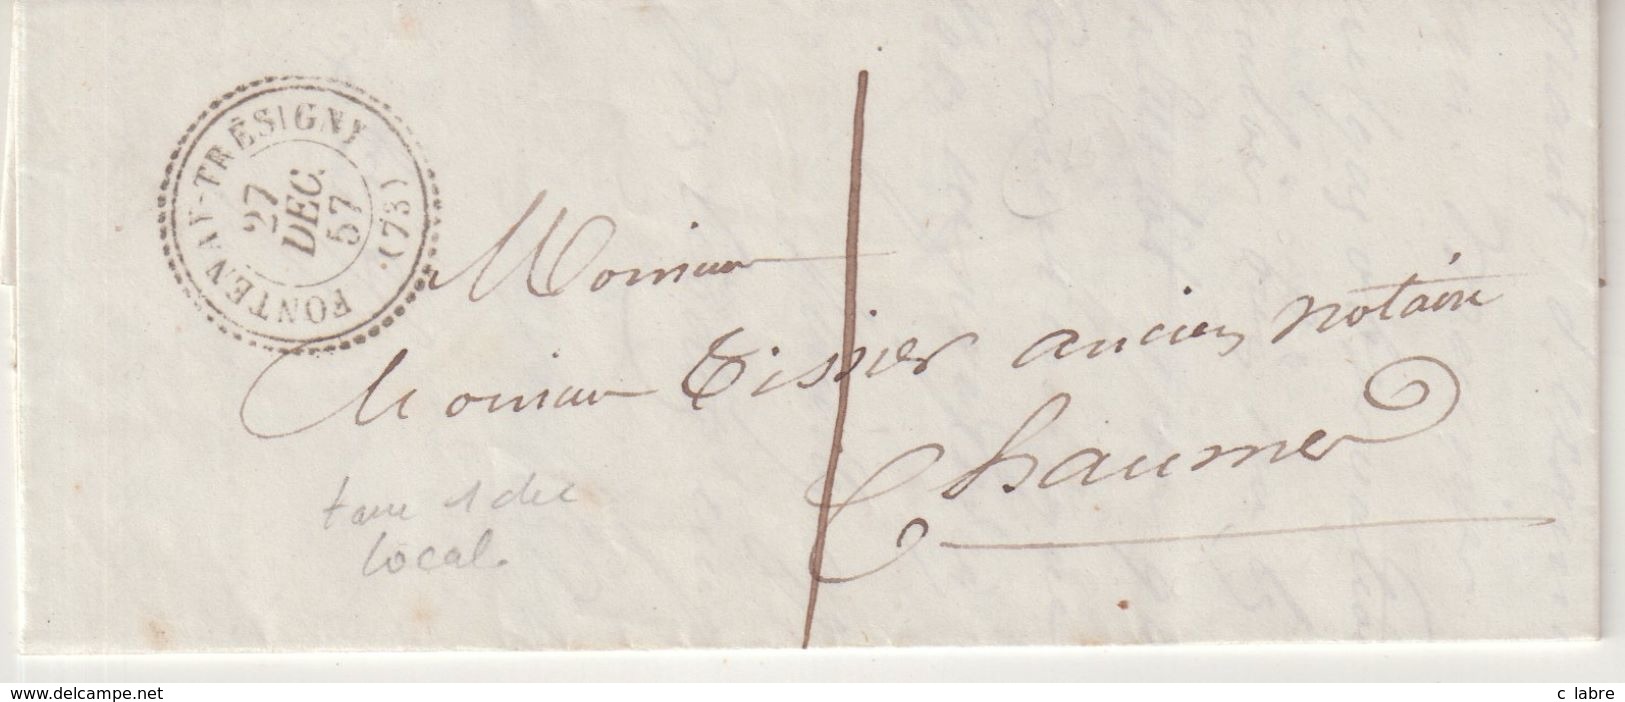 FONTENAY-TRÉSIGNY (73)
27
DEC.
57
Monsieur
Monsieur Tissier ancien notaire
Chaumes
taxe 1 dec
local.
www.delcampe.net
c labre